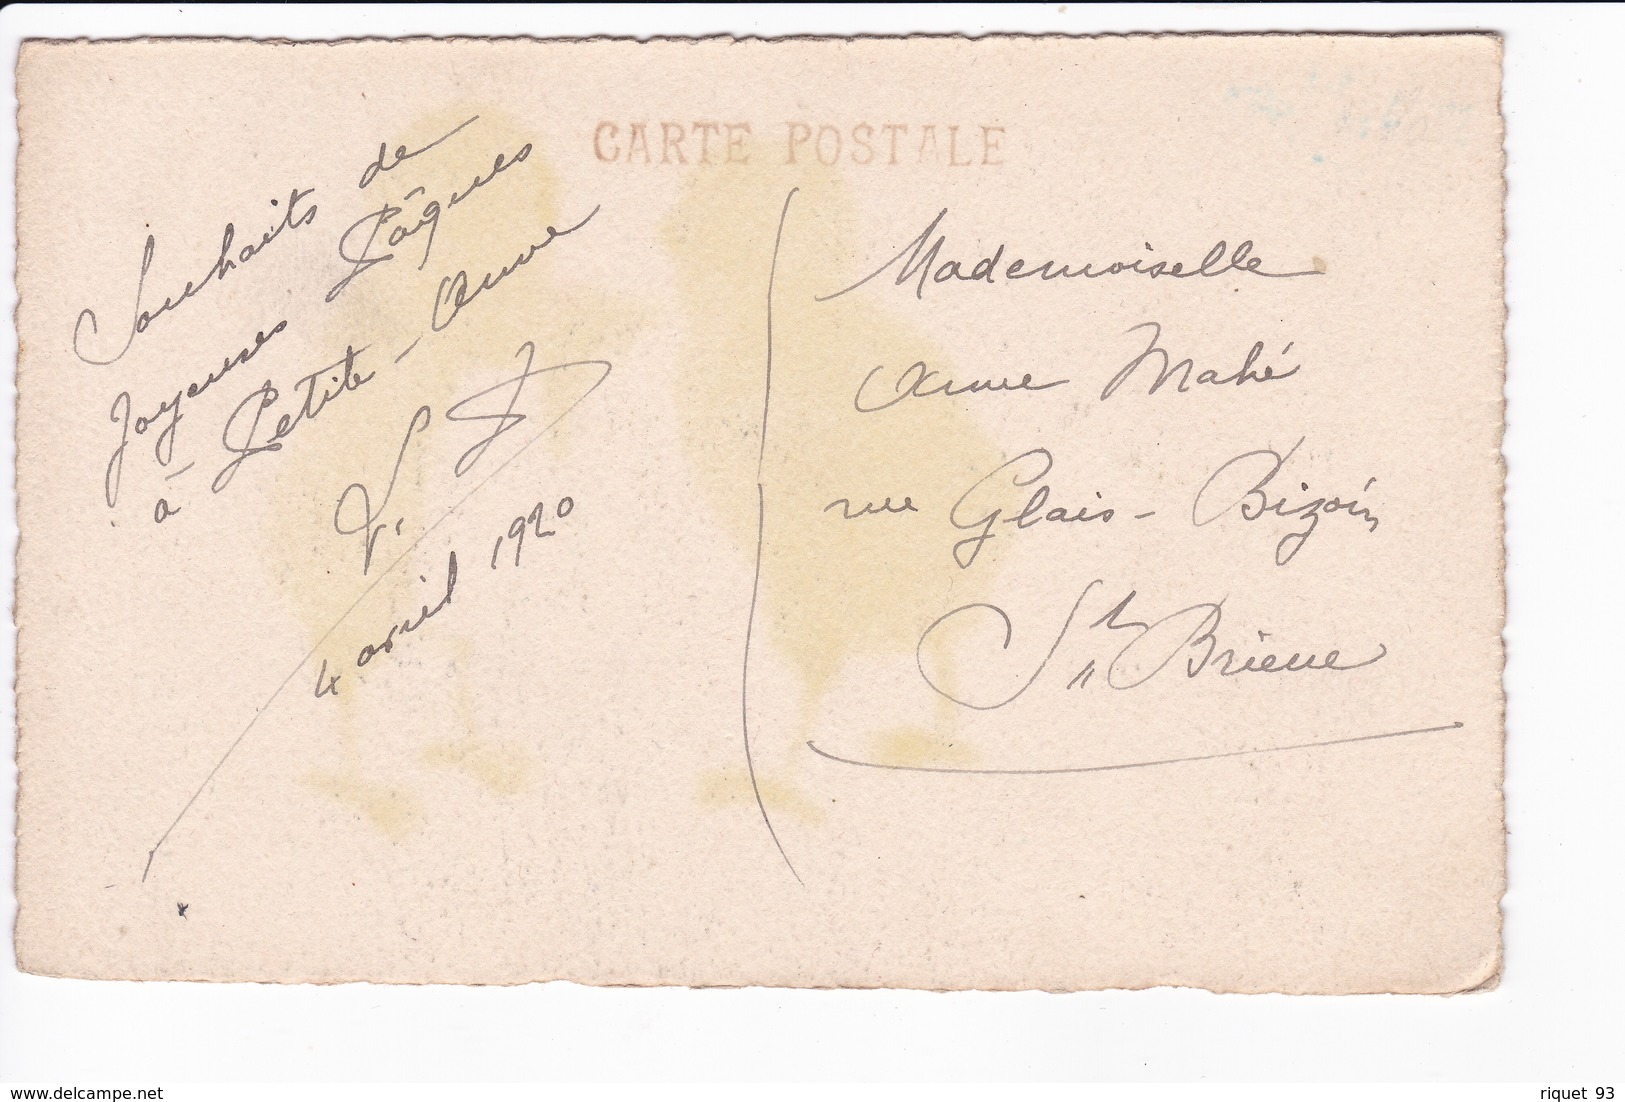 CARTE POSTALE
Souhaits de
Joyeuses Pâques
à Petite-Anne
4 avril 1920
Mademoiselle
Anne Mahé
rue Glais-Bizoin
St Brieuc
www.delcampe.net
riquet 93